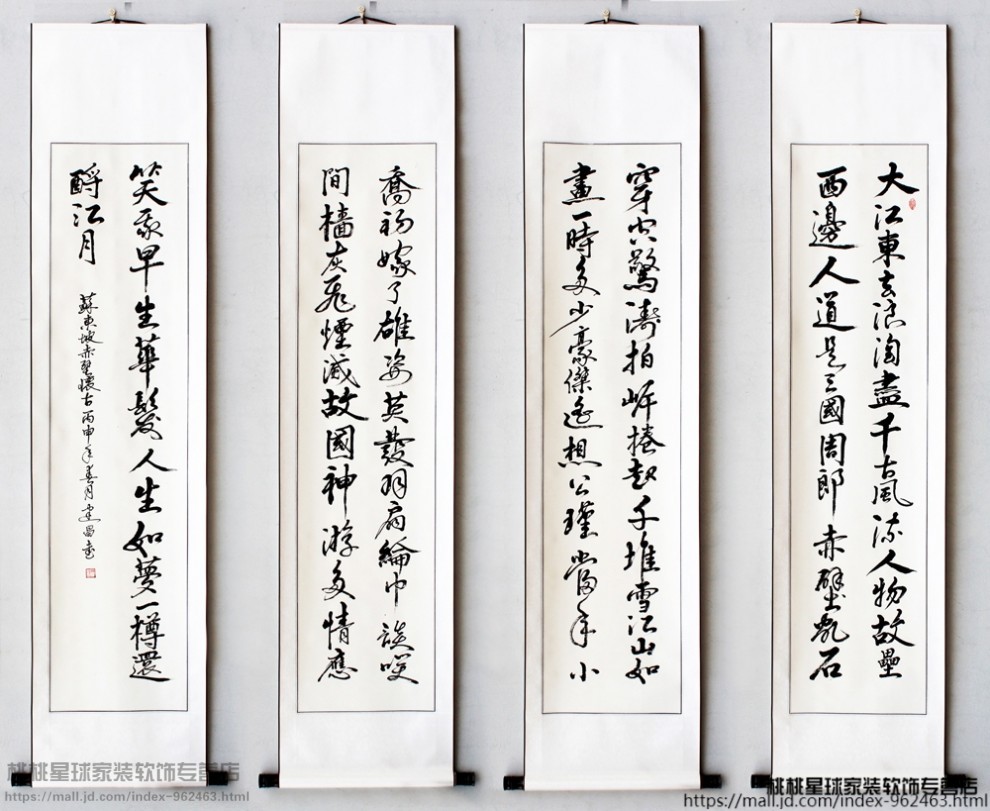 大江東去浪淘盡千古風流人物故壘
西邊人道是三國周郎赤壁亂石
穿空驚濤拍岸捲起千堆雪江山如
畫一時多少豪傑遙想公瑾當年小
喬初嫁了雄姿英發羽扇綸巾談笑
間檣灰飛煙滅故國神游多情應
笑我早生華髮人生如夢一樽還
酹江月
蘇東坡赤壁懷古丙申年春月
桃桃星球家装软饰专营店
https://mall.jd.com/index-962463.html
桃桃星球家装软饰专营店
https://mall.jd.com/index-962463.html